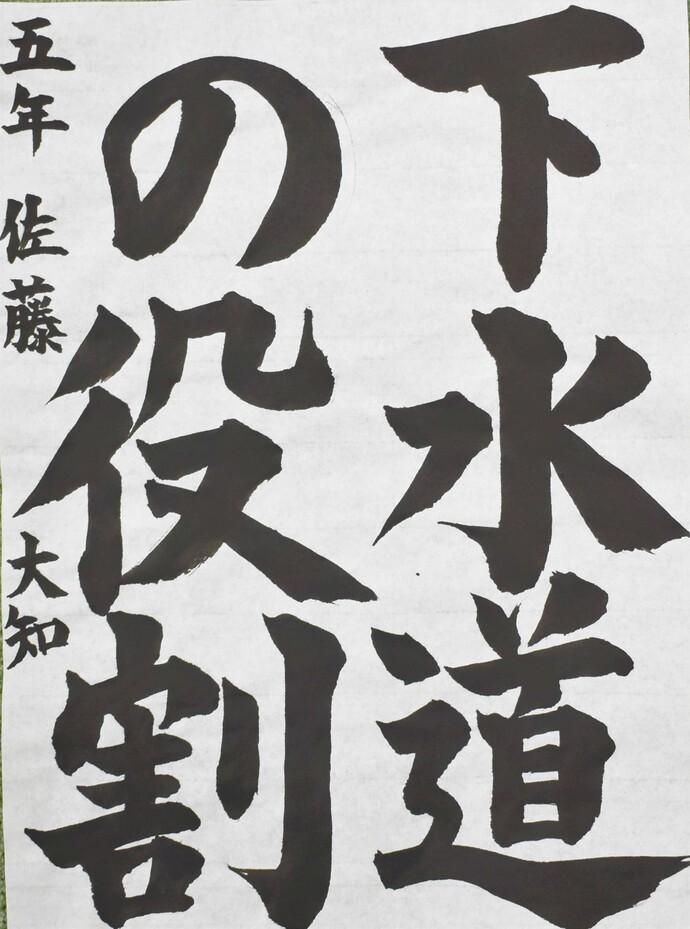 下水道
の役割
五年 佐藤 大知